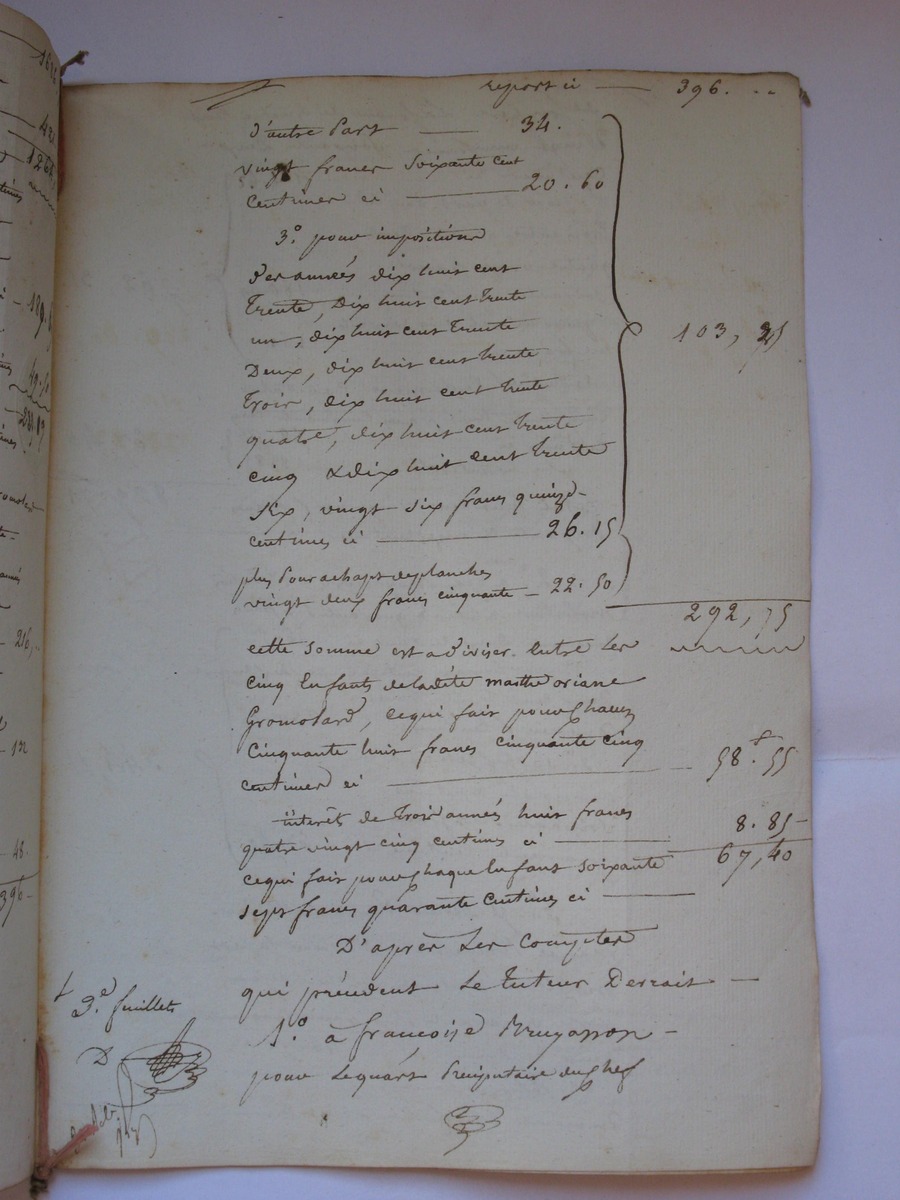 report ci — 396. ..
d'autre part — 34.
vingt francs soixante cent
centimes ci — 20.60
3.° pour impositions
des années dix huit cent
trente, dix huit cent trente
un, dix huit cent trente
Deux, dix huit cent trente
trois, dix huit cent trente
quatre, dix huit cent trente
cinq & dix huit cent trente
six, vingt six francs quinze
centimes ci — 26.15
103, 25
plus pour achapt de planches
vingt deux francs cinquante — 22.50
292,75
cette somme est a diviser entre les
cinq Enfants de ladite marthe oriane
Gromolard, ce qui fait pour chacun
Cinquante huit francs cinquante cinq
centimes ci — 58.f 55
interêts de trois années huit francs
quatre vingt cinq centimes ci — 8.85
ce qui fait pour chaque Enfant soixante
sept francs quarante centimes ci — 67,40
D'après Les Comptes
qui précédent Le tuteur Devrait —
1.° à francoise Bruyasson —
pour Le quart Preciputaire du chef
9.e feuillet
D